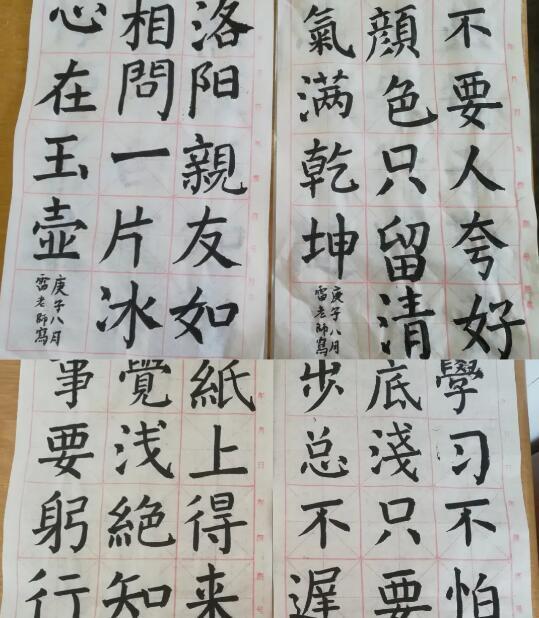 洛阳親友如
相問一片冰
心在玉壶
庚子八月
雷老師寫
不要人夸好
顔色只留清
氣满乾坤
庚子八月
雷老師寫
紙上得来
覺浅絶知
事要躬行
學习不怕
底淺只要
步总不遲